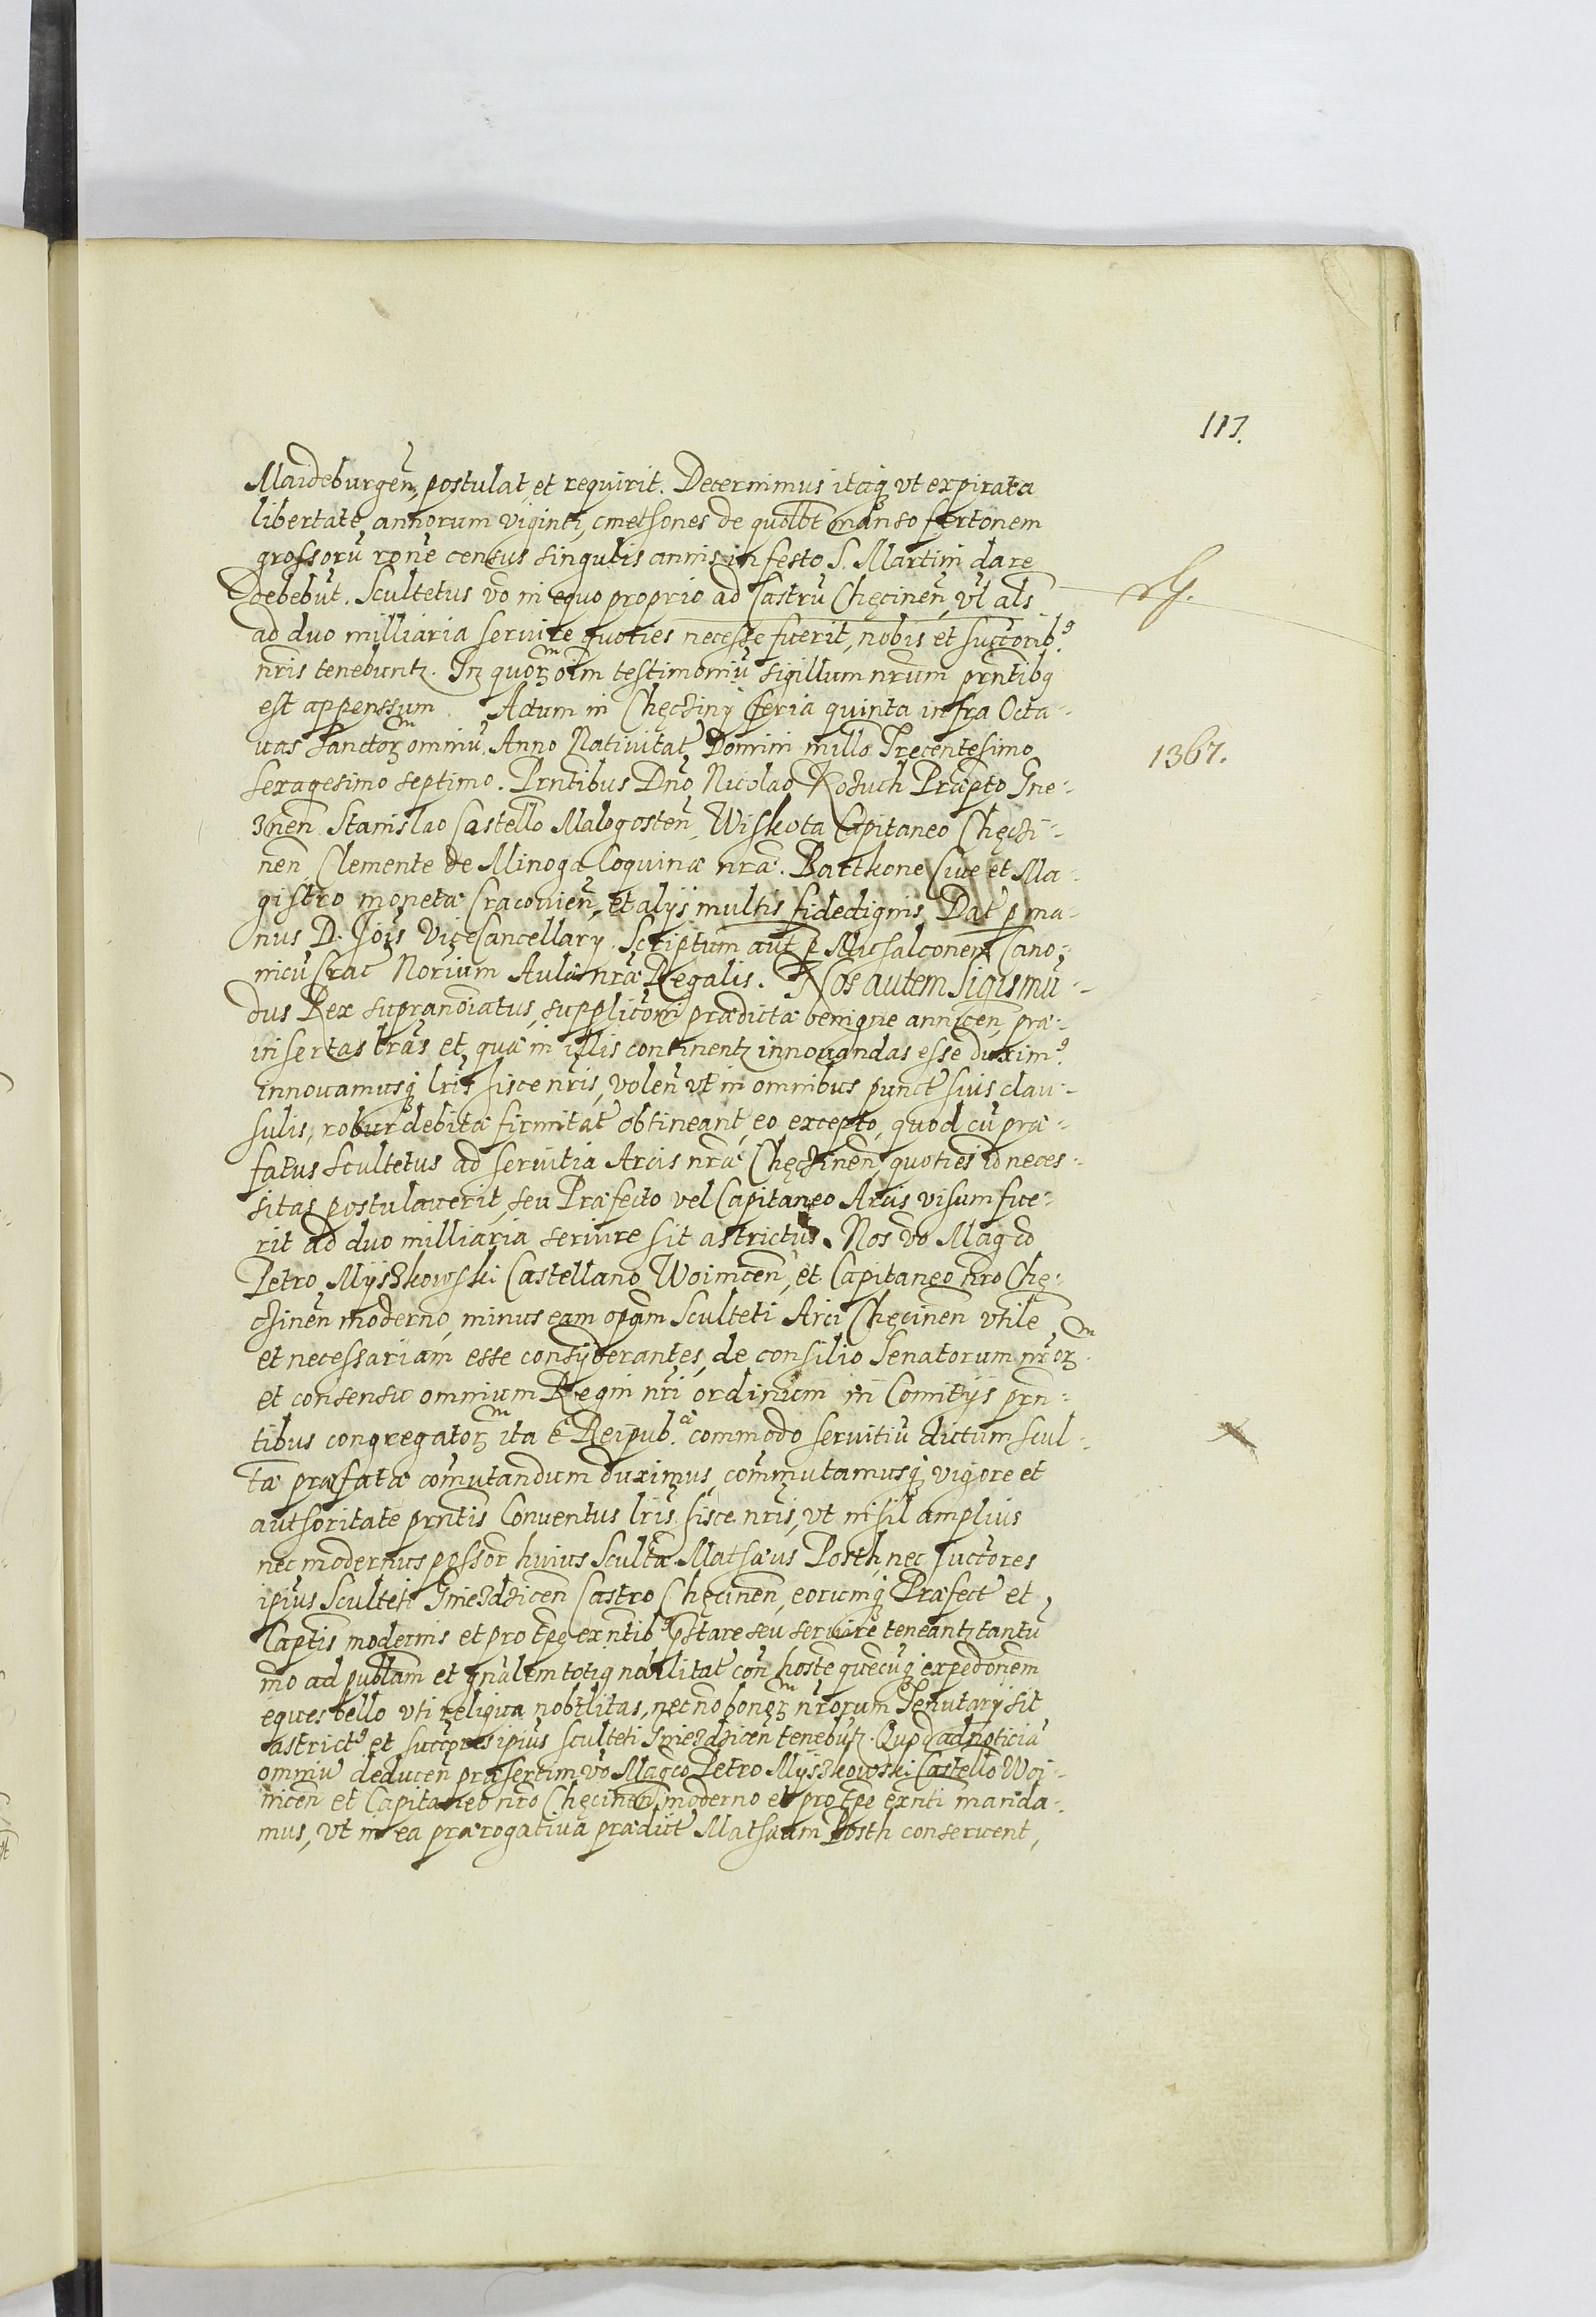 117.
Maideburgen̄, postulat et requirit. Decernimus itaq̨ vt expirata
libertate annorum viginti, cmethones de quolbt manso fertonem
grossorū rōne census singulis annis in festo S. Martini dare
debebūt. Scultetus vō in equo proprio ad Castrū Chęcinen̄, vl als
ad duo milliaria seruire quoties necesse fuerit, nobis et succorib⁹
nr̄is tenebuntz. In quoꝝ oīm testimoniū sigillum nr̄um prn̄tibq
est appenssum. Actum in Chęcziny feria quinta infra Octa-
uas Sanctoꝝ omniū Anno Natiuitat̄ Domini millo Trecentesimo
1367.
sexagesimo septimo. Prn̄tibus Dno Nicolao Kozuch Præpto Gne-
znen̄ Stanislao Castello Malogosten̄, Wiskota Capitaneo Chęczi-
nen̄, Clemente de Minoga Coquinæ nr̄æ. Bartkone Ciue et Ma-
gistro monetæ Cracouien̄, et alijs multis fidedignis. Dat̄ p ma-
nus D. Jois ViceCancellary. Scriptum aut̄ p Mithalconem Cano-
nicū Crac̄ Norium Aulæ nr̄æ Regalis. Nos autem Sigismū-
dus Rex supranoiatus, supplicōni prædictæ benigne annuen̄, præ-
insertas lr̄as et quæ in illis continentz innouandas esse duxim⁹
innouamusq̨ lr̄is hisce nr̄is, volen̄ vt in omnibus punct̄ suis clau-
sulis, robur debitæ firmitat̄ obtineant, eo excepto, quod cū præ-
fatus Scultetus ad seruitia Arcis nr̄æ Chęczinen̄, quoties id neces-
sitas postulauerit, seu Præfecto vel Capitaneo Arcis visum fue-
rit ad duo milliaria seruire sit astrictus. Nos vō Magco
Petro Myszkowski Castellano Woinicen̄, et Capitaneo nr̄o Chę-
czinen̄ moderno, minus eam opam Sculteti Arci Chęcinen̄ vtile
et necessariam esse consyderantes, de consilio Senatorum nr̄oꝝ
et consensu omnium Regni nr̄i ordinum in Comitijs prn̄-
tibus congregatoꝝ ita ē Reipub. commodo seruitiū dictum scul-
tæ præfatæ comutandum duximus, commutamusq̨ vigore et
authoritate prn̄tis Conuentus lr̄is hisce nr̄is, vt nihil amplius
nec modernus possor huius Scultæ Mathæus Posth, nec succores
ipius Sculteti Gniezdzicen̄ Castro Chęcinen̄, eorumq̨ Præfect̄ et
Captis modernis et pro tpe exn̄tib⁹ pstare seu seruire teneantz tantū
mō ad publam et gn̄alem totiq nobilitat̄ con̄ hostē quecūq̨ expedōnem
eques bello vti reliqua nobilitas, necnō bonoꝝ nr̄orum Tenutarij sit
astrict⁹ et succores ipius sculteti Gniezdzicen̄ tenebūtz. Quod ad noticiā
omniū deducen̄ præsertim vō Magco Petro Myszkowski Castello Woj-
nicen̄ et Capitaneo nr̄o Chęcinen̄ moderno et pro tpe exn̄ti manda-
mus, vt in ea prærogatiua prædict̄ Mathæum Posth conseruent,